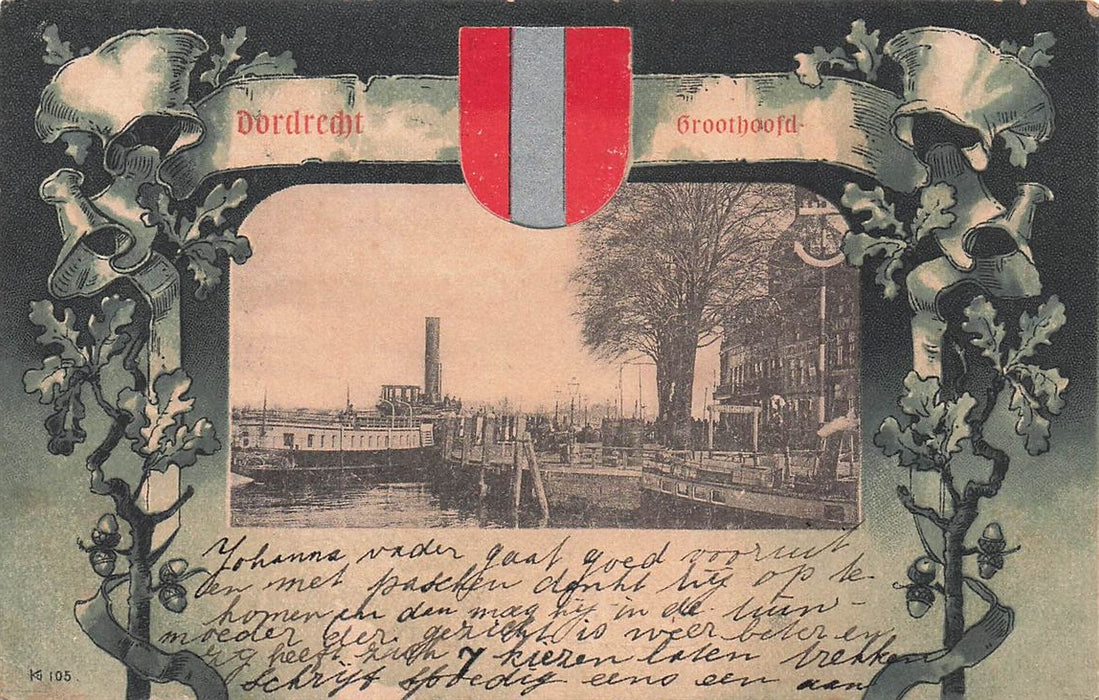 Dordrecht
Groothoofd
Johanna vader gaat goed vooruit
en met paschen denkt hij op te
komen en dan mag hij in de tuin
moeder der gezicht is weer beter en
zij heeft zich 7 kiezen laten trekken
schrijf spoedig eens een aan
105